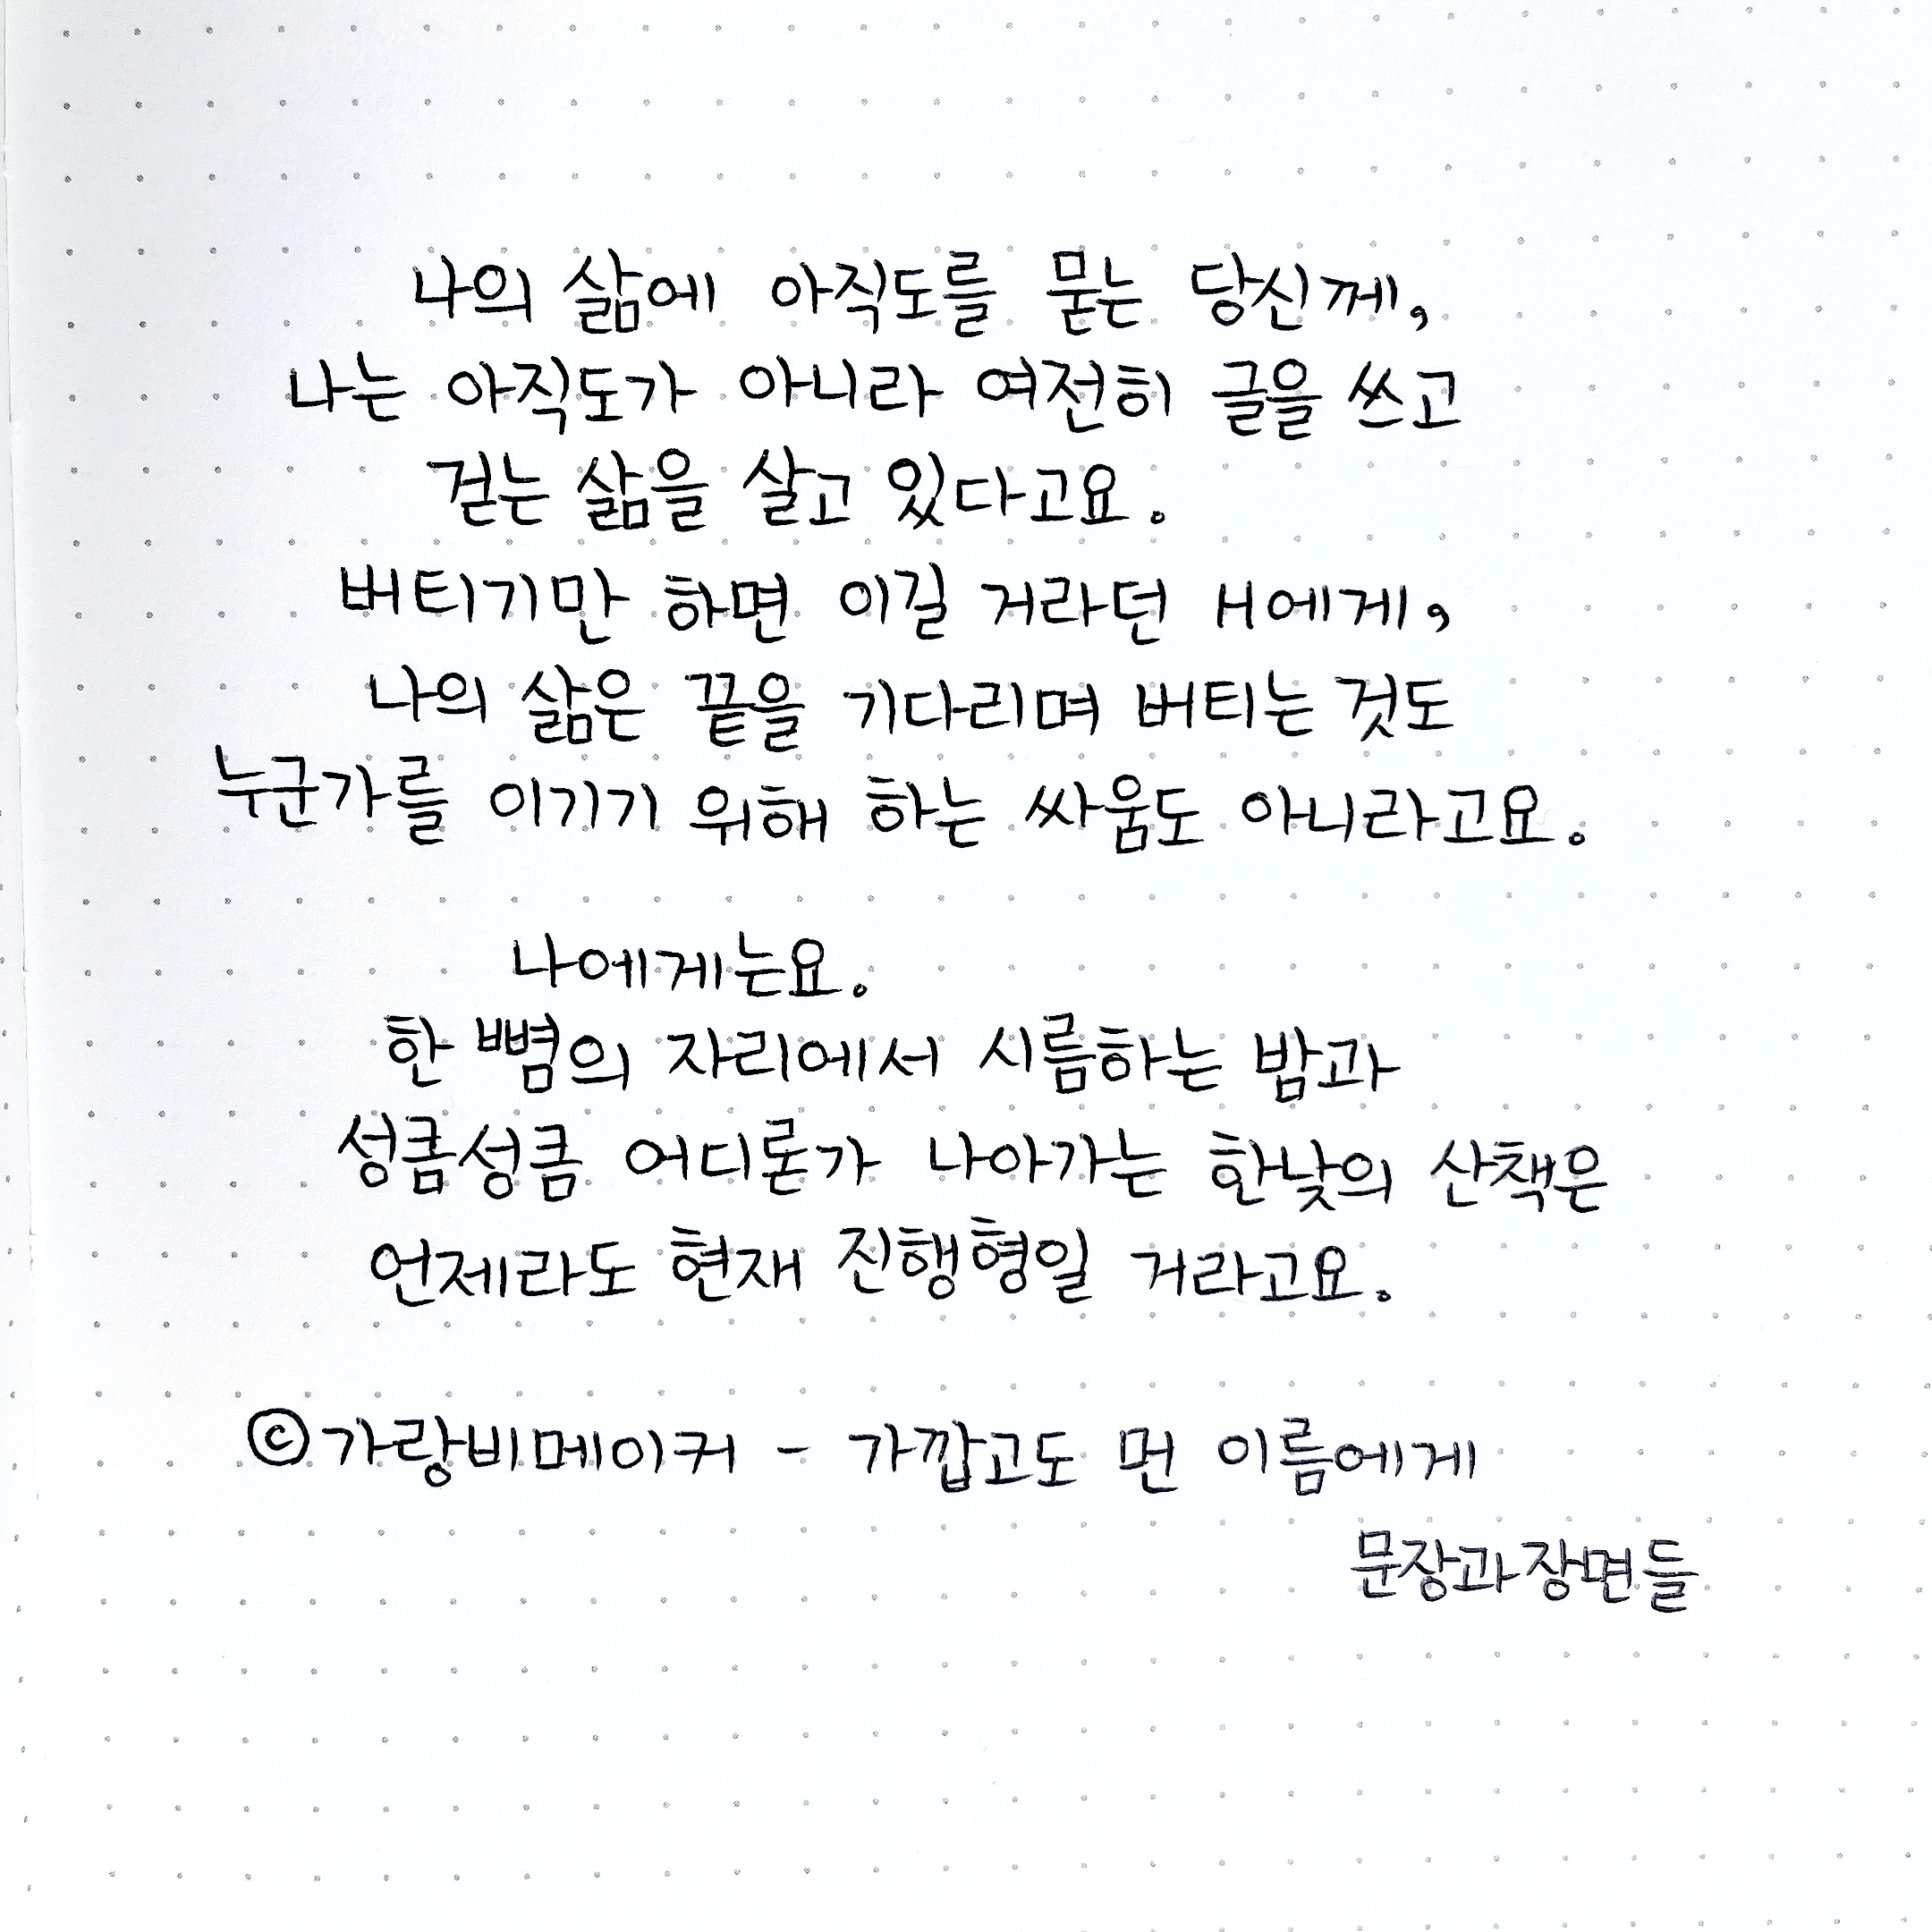 나의 삶에 아직도를 묻는 당신께,
나는 아직도가 아니라 여전히 글을 쓰고
걷는 삶을 살고 있다고요.
버티기만 하면 이길 거라던 H에게,
나의 삶은 끝을 기다리며 버티는 것도
누군가를 이기기 위해 하는 싸움도 아니라고요.
나에게는요.
한 뼘의 자리에서 시름하는 밤과
성큼성큼 어디론가 나아가는 한낮의 산책은
언제라도 현재 진행형일 거라고요.
©가랑비메이커 - 가깝고도 먼 이름에게
문장과장면들